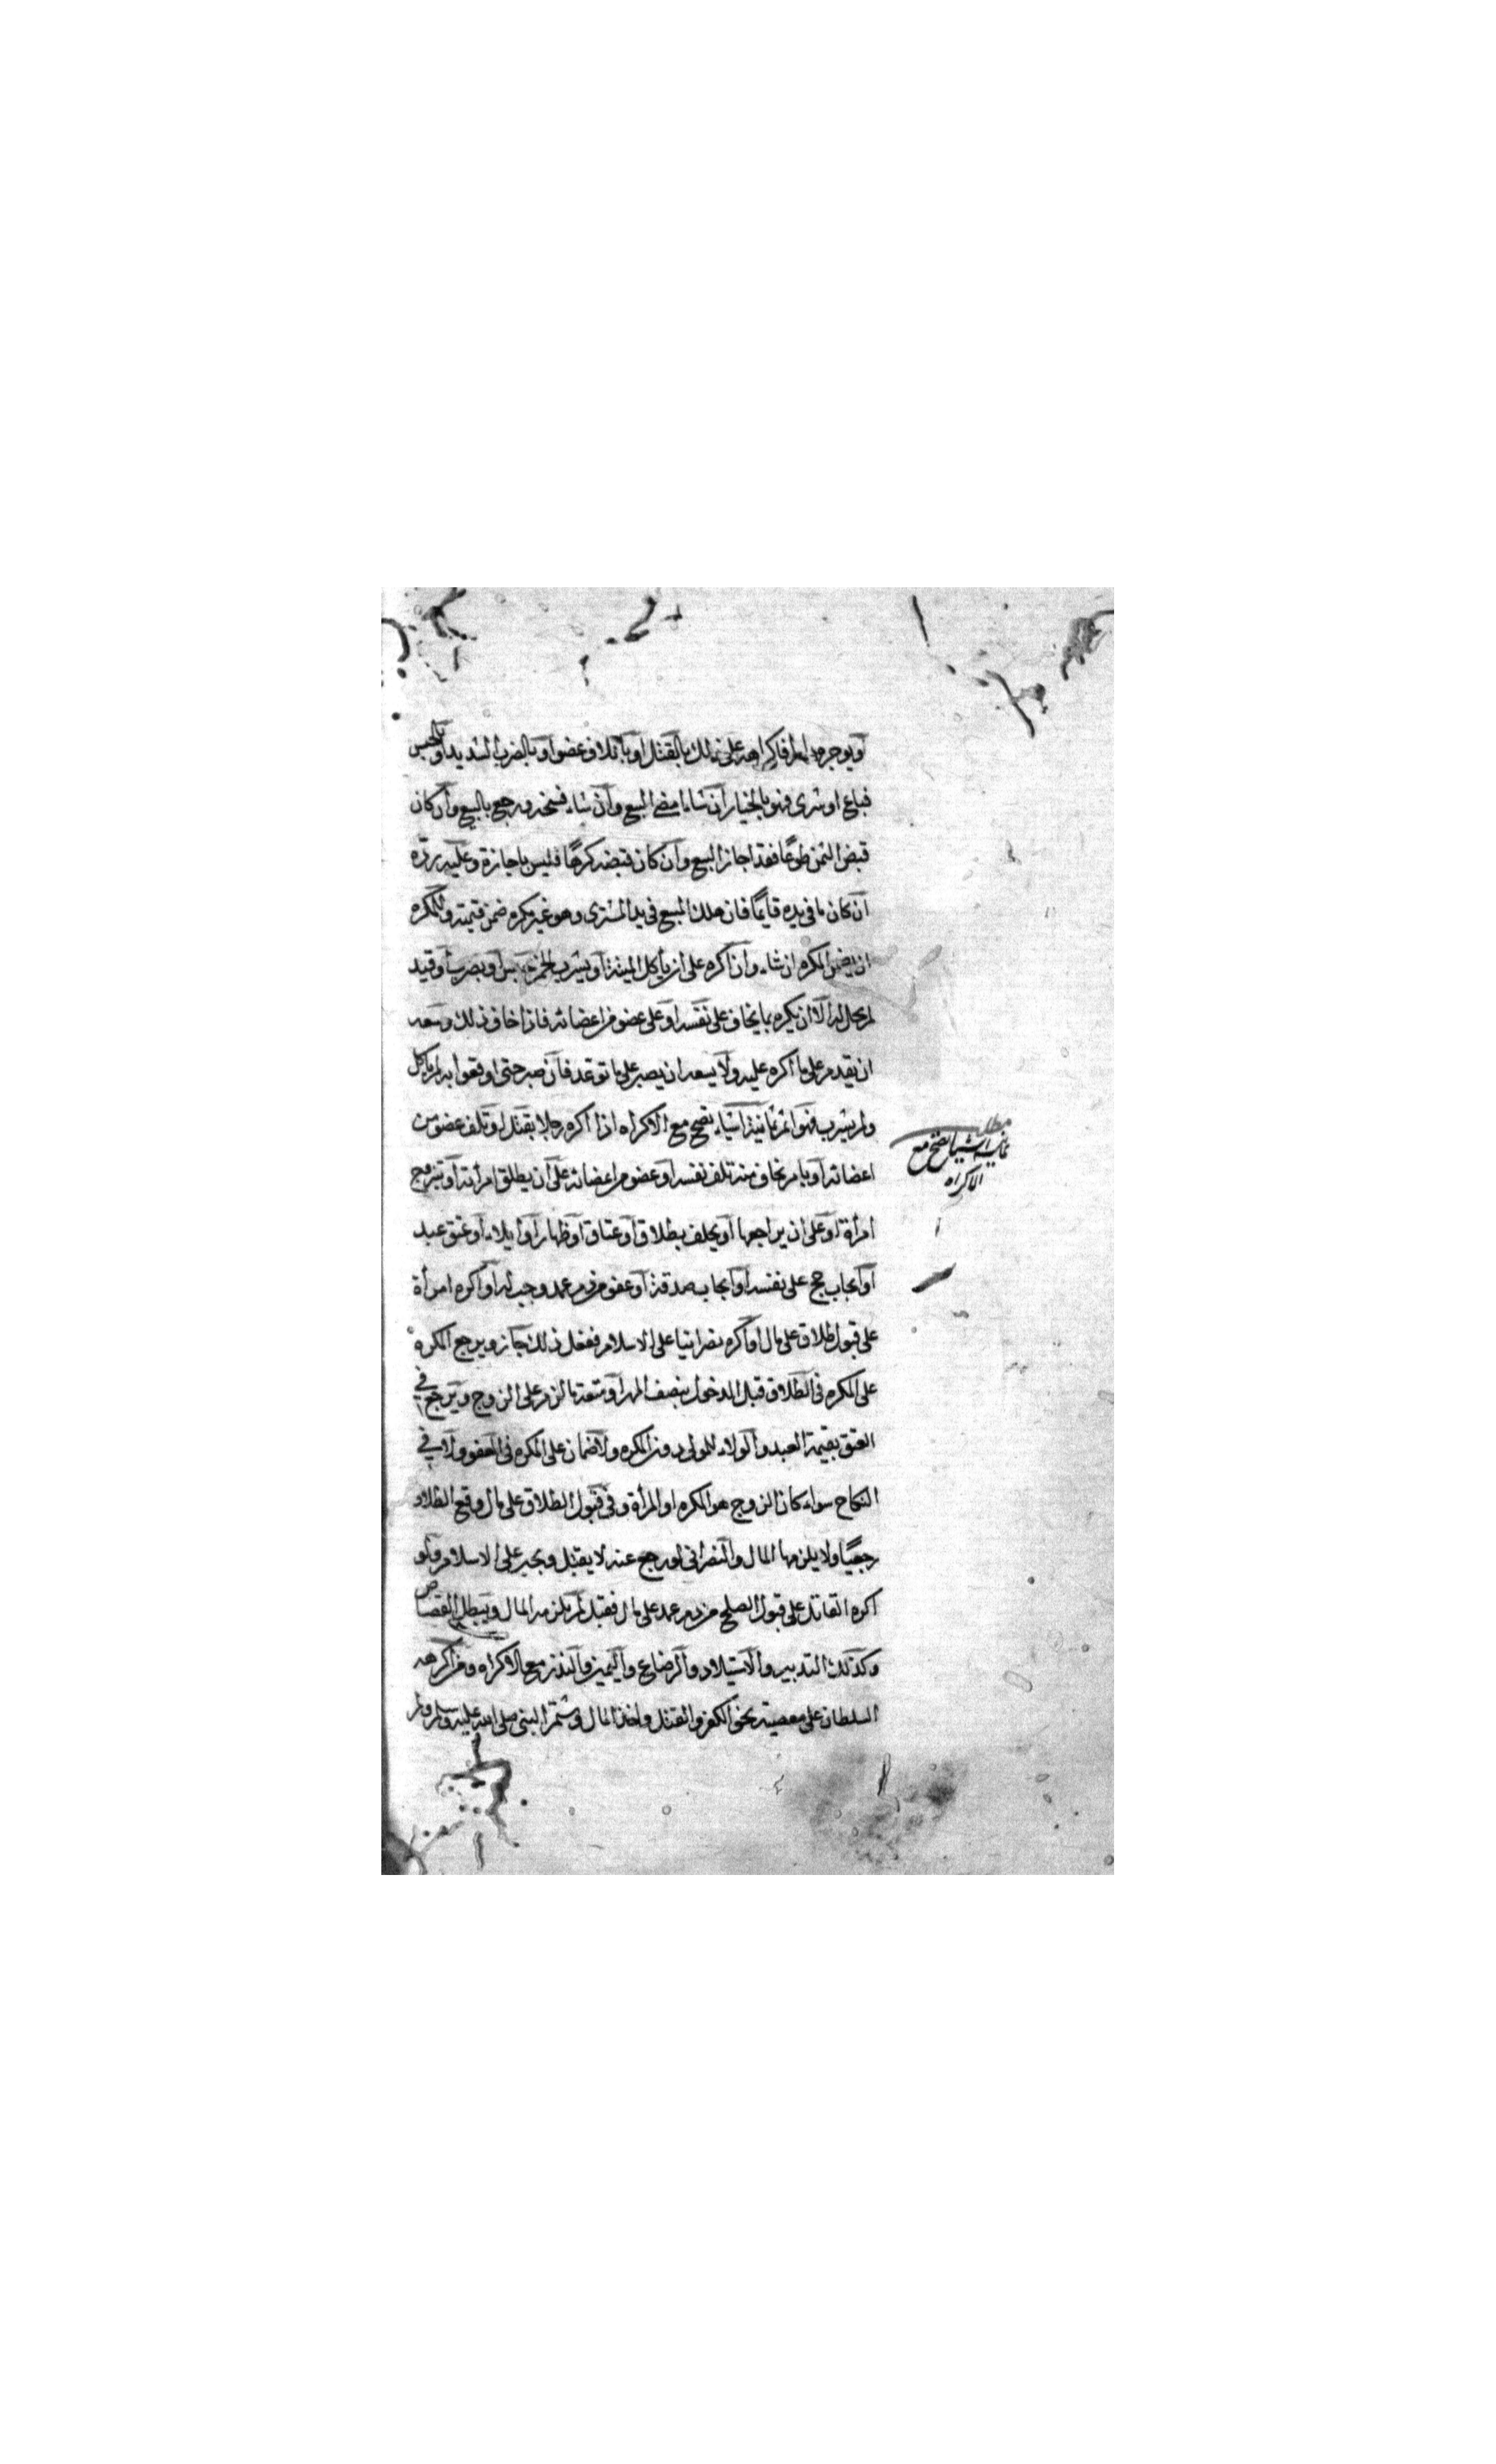 أو يوجر داره فاكراهه على ذلك بالقتل او باتلاف عضو او بالضرب الشديد او بالحبس
فباع او شرى فهو بالخيار ان شاء امضى البيع وان شاء فسخه ورجع بالمبيع وان كان
قبض الثمن طوعًا فقد اجاز البيع وان كان قبضه كرهًا فليس باجازة وعليه ردّه
ان كان ما فى يده قايمًا فان هلك المبيع فى يد المشترى وهو غير مكره ضمن قيمته وللمكره
ان يضمن المكره ان شاء وان اكره على ان ياكل الميتة او يشرب الخمر بحبس او بضرب او قيد
لم يحل له الا ان يكره بما يخاف على نفسه او على عضو من اعضائه فاذا خاف ذلك وسعه
ان يقدم على ما اكره عليه ولا يسعه ان يصبر على ما توعد فان صبر حتى اوقعوا به لم ياكل
ولم يشرب فهو اثم ثمانية اشياء تصح مع الاكراه اذا اكره رجلا بقتل او تلف عضو من
اعضائه او بامر يخاف منه تلف نفسه او عضو من اعضائه على ان يطلق امرأته او تتزوج
امرأة او على ان يراجعها او يحلف بطلاق او عتاق او ظهار او ايلاء او عتق عبد
او ايجاب حج على نفسه او ايجاب صدقة او عفو من دم عمد وجب له او اكره امرأة
على قبول طلاق على مال او اكره نصرانيا على الاسلام ففعل ذلك جاز ويرجع المكره
على المكره فى الطلاق قبل الدخول بنصف المهر او متعة مالزم على الزوج ويرجع فى
العتق بقيمة العبد والولاء للمولى دون المكره ولا ضمان على المكره فى العفو ولا فى
النكاح سواء كان الزوج هو المكره او المرأة وفى قبول الطلاق على مال وقع الطلاق
رجعيًا ولا يلزمها المال والنصرانى لو رجع عنه لا يقتل ويجبر على الاسلام ولو
اكره القاتل على قبول الصلح من دم عمد على مال فقبل لم يلزمه المال ويبطل القصاص
وكذلك التدبير والاستيلاد والرضاع واليمين والنذر مع الاكراه ومن اكرهه
السلطان على معصية نحو الكفر والقتل واخذ المال وشتم النبى صلى الله عليه وسلم ولم
مطلب
ثمانية اشياء تصح مع
الاكراه